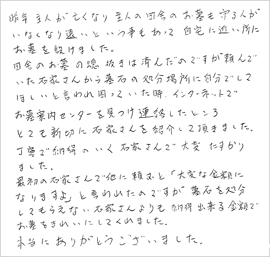 昨年主人が亡くなり主人の田舎のお墓を守る人が
いなくなり遠いという事もあって自宅に近い所に
お墓を設けました。
田舎のお墓の魂抜きは済んだのですが頼んで
いた石家さんから墓石の処分場所に自分でして
ほしいと言われ困っていた時、インターネットで
お墓案内センターを見つけ連絡したところ
とても親切に石家さんを紹介して頂きました。
丁寧で納得のいく石家さんで大変たすかり
ました。
最初の石家さんで他に頼むと「大変な金額に
なりますよ」と言われたのですが墓石を処分
してもらえない石家さんよりも納得出来る金額で
お墓をきれいにしてくれました。
本当にありがとうございました。